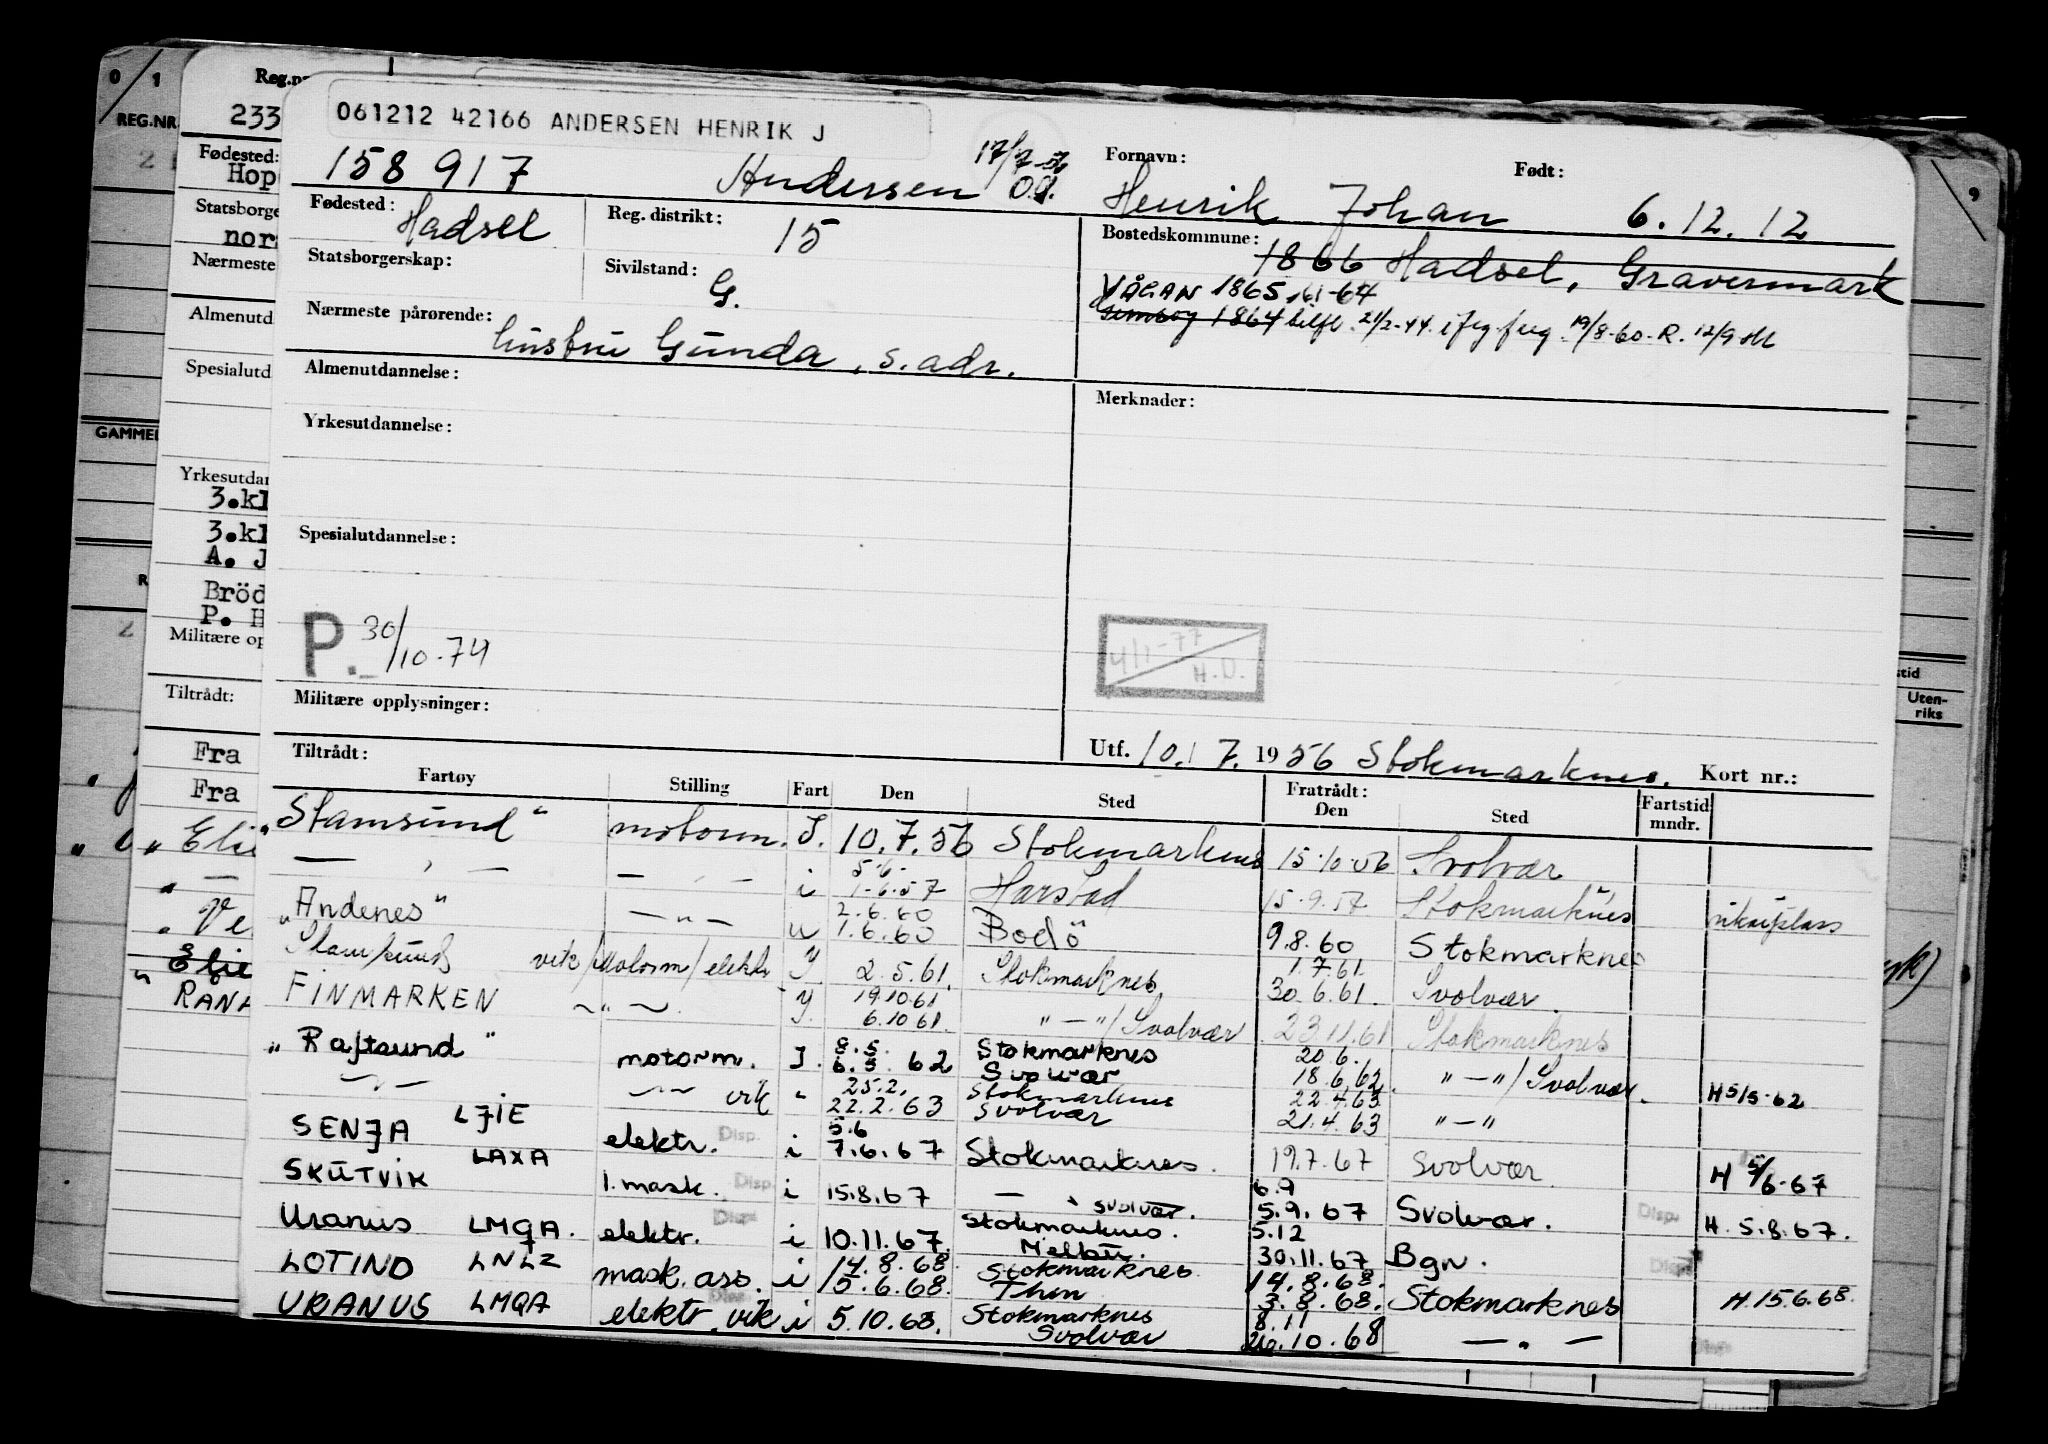 061212 42166 ANDERSEN HENRIK J
158 917 Andersen 17/7-56 Fornavn: Henrik Johan Født: 6.12.12
Fødested: Hadsel Reg. distrikt: 15 Bostedskommune: 1866 Hadsel, Gravermark
Statsborgerskap: Sivilstand: G. VÅGAN 1865 61-64
1864 bilfl. 21/2-44 19/8-60-R. 12/9
Nærmeste pårørende: hustru Gunda, s. adr.
Almenutdannelse: Merknader:
Yrkesutdannelse:
Spesialutdannelse:
P. 30/10-74 4/1-77 H.D.
Militære opplysninger:
Utf. 10. 7. 1956 Stokmarknes. Kort nr.:
Tiltrådt: Fratrådt:
Fartøy Stilling Fart Den Sted Den Sted Fartstid mndr.
Stamsund" motorm. I. 10.7.56 Stokmarknes 15.10.56 Svolvær
— " — — " — i 5.6. 1-6.57 Harstad 15.9.57 Stokmarknes
"Andenes" — " — u 2.6.60 1.6.60 Bodö 9.8.60 Stokmarknes
Stamsund vik/Motorm/elektr I 2.5.61. Stokmarknes 1.7.61 30.6.61. Svolvær
FINMARKEN — " — I. 19.10.61 6.10.61. " — "/Svolvær 23.11.61 Stokmarknes
"Raftsund" motorm. I. 8.5. 6.5.62 Stokmarknes Svolvær 20.6. 18.6.62. " — "/Svolvær. H 5/5-62
— " — — " — vik " 25.2. 22.2.63 Stokmarknes Svolvær 22.4.63 21.4.63 " — "
SENJA LJIE elektr. Disp. i 5.6 7.6.67 Stokmarknes. 19.7.67 Svolvær H 5/6-67
SKUTVIK LAXA 1. mask. Disp. i 15.8.67 — " Svolvær. 6.9 5.9.67 Svolvær. Disp. H. 5.8.67.
Uranus LMQA. elektr. Disp. i 10.11.67. Stokmarknes. Melbu. 5.12 30.11.67 Bgn. Disp.
LOTIND LNLZ mask. ass. i 14.8.68. 15.6.68. Stokmarknes Thm 14.8.68. 3.8.68. Stokmarknes H. 15.6.68.
URANUS LMQA elektr. vik Disp. i 5.10.68. Stokmarknes Svolvær 8.11 26.10.68 — " — Disp.
0/1 Reg.nr
REG.NR. 233
Fødested: Hop
Statsborge nor
Nærmeste
Almenutd
Spesialutd
GAMMEL
Yrkesutdan
3.kl
3.kl
A. J
Bröd
P. H
Militære op
Tiltrådt:
Fra
Fra
" Elie
" Ve
Elie
" RANA
9
Uten-
riks